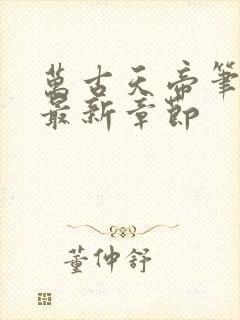 萬古天帝筆
最新章節
董仲舒